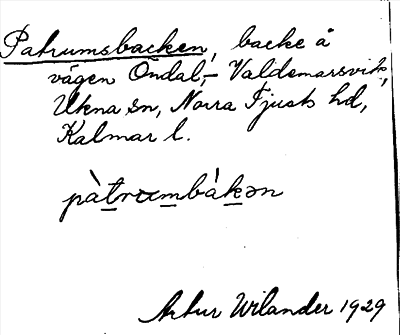 Patrumsbacken, backe å
vägen Öndal, – Valdemarsvik,
Ukna sn, Norra Tjusts hd,
Kalmar l.
pàtrumbàkən
Artur Wilander 1929